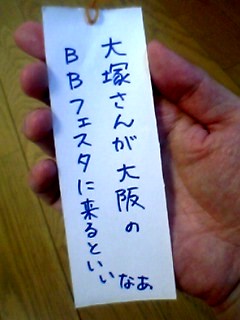 大塚さんが大阪の
BBフェスタに来るといい
なぁ